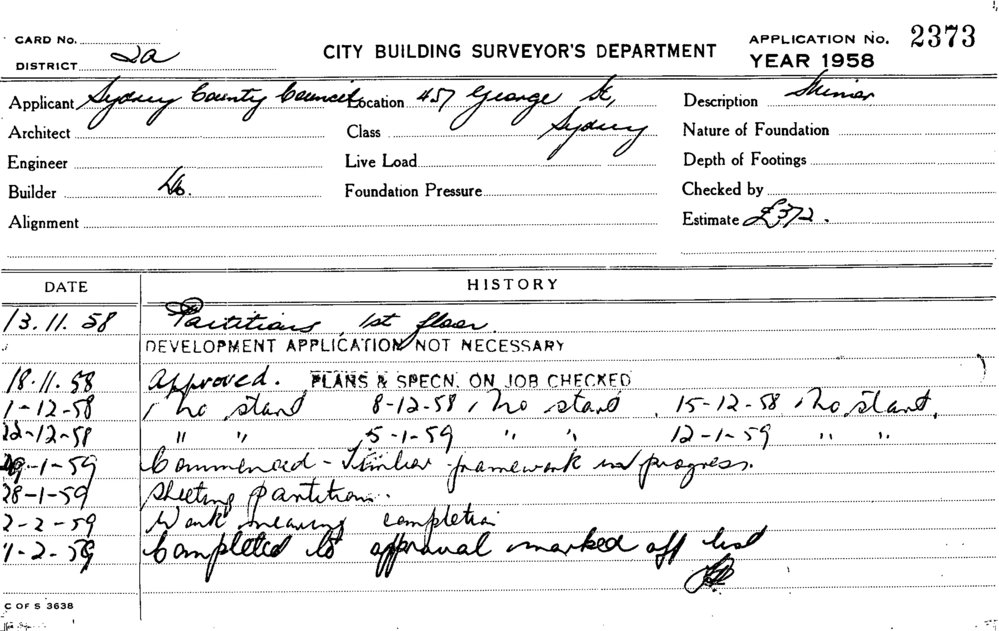 CARD No.
DISTRICT 2a
CITY BUILDING SURVEYOR'S DEPARTMENT
APPLICATION No. 2373
YEAR 1958
Applicant Sydney County Council Location 457 George St, Description Minor
Architect Class Sydney Nature of Foundation
Engineer Live Load Depth of Footings
Builder Do. Foundation Pressure Checked by
Alignment Estimate £372.
DATE HISTORY
13.11.58 Partitions 1st floor.
DEVELOPMENT APPLICATION NOT NECESSARY
18.11.58 Approved. PLANS & SPECN. ON JOB CHECKED
1-12-58 No start 8-12-58 No start 15-12-58 No start.
22-12-58 " " 5-1-59 " " 12-1-59 " "
19-1-59 Commenced - Timber framework in progress.
28-1-59 Sheeting partition.
2-2-59 Work nearing completion
-2-59 Completed to approval marked off list
C OF S 3638